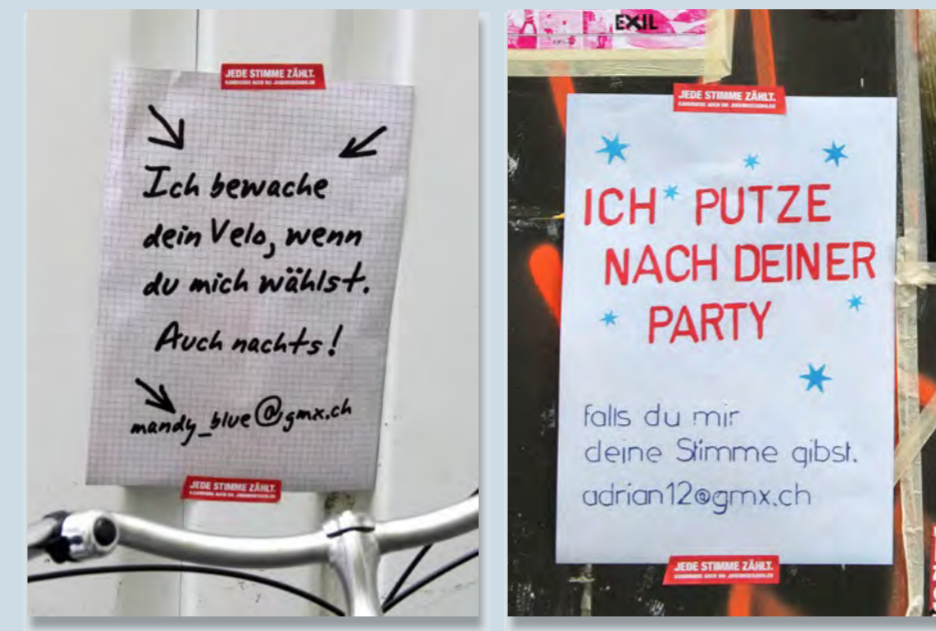 JEDE STIMME ZÄHLT.
Ich bewache
dein Velo, wenn
du mich wählst.
Auch nachts!
mandy_blue@gmx.ch
JEDE STIMME ZÄHLT.
EXIL
JEDE STIMME ZÄHLT.
ICH PUTZE
NACH DEINER
PARTY
falls du mir
deine Stimme gibst.
adrian12@gmx.ch
JEDE STIMME ZÄHLT.